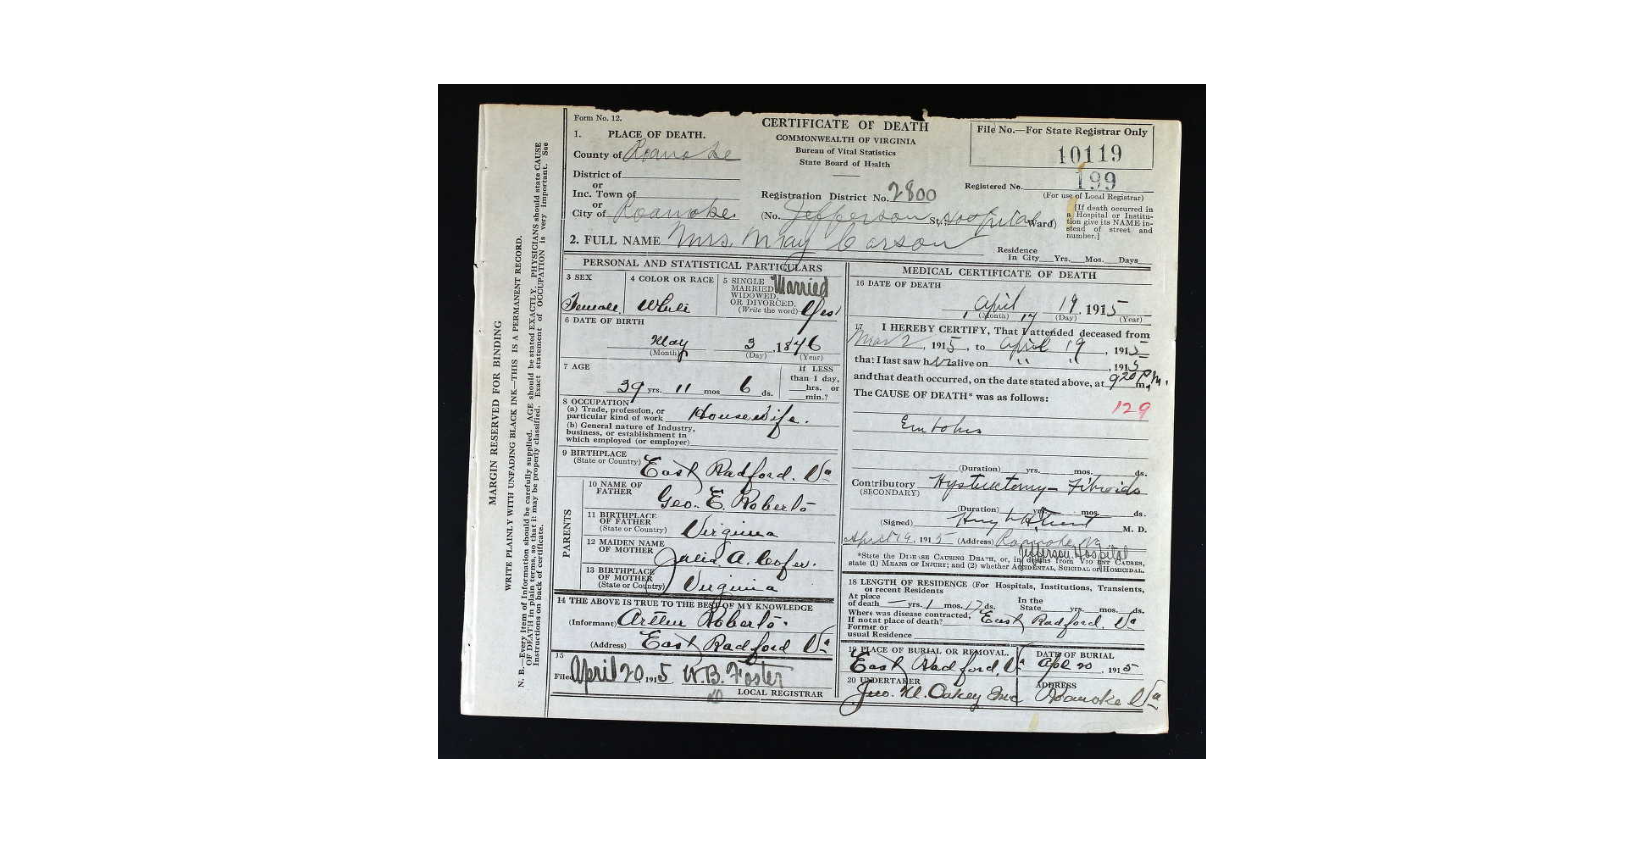 Form No. 12.
CERTIFICATE OF DEATH
COMMONWEALTH OF VIRGINIA
Bureau of Vital Statistics
State Board of Health
File No.—For State Registrar Only
10119
1. PLACE OF DEATH.
County of Roanoke
District of
or
Inc. Town of
or
City of Roanoke.
Registration District No. 2800
(No. Jefferson St., Hospital Ward)
Registered No. 199
(For use of Local Registrar)
[If death occurred in
a Hospital or Institu-
tion give its NAME in-
stead of street and
number.]
2. FULL NAME Mrs. May Carson
Residence
in City Yrs. Mos. Days
PERSONAL AND STATISTICAL PARTICULARS
3 SEX
Female
4 COLOR OR RACE
White
5 SINGLE
MARRIED
WIDOWED,
OR DIVORCED.
(Write the word)
Married
Yes
6 DATE OF BIRTH
May 3, 1876
(Month) (Day) (Year)
7 AGE
39 yrs. 11 mos 6 ds.
If LESS
than 1 day,
hrs. or
min.?
8 OCCUPATION
(a) Trade, profession, or
particular kind of work Housewife.
(b) General nature of Industry,
business, or establishment in
which employed (or employer)
9 BIRTHPLACE
(State or Country) East Radford. Va
PARENTS
10 NAME OF
FATHER Geo. E. Roberts
11 BIRTHPLACE
OF FATHER
(State or Country) Virginia
12 MAIDEN NAME
OF MOTHER Julia A. Cofer.
13 BIRTHPLACE
OF MOTHER
(State or Country) Virginia
14 THE ABOVE IS TRUE TO THE BEST OF MY KNOWLEDGE
(Informant) Arthur Roberts.
(Address) East Radford Va
15
Filed April 20 1915 W.B. Foster
LOCAL REGISTRAR
MEDICAL CERTIFICATE OF DEATH
16 DATE OF DEATH
April 19, 1915
(Month) (Day) (Year)
17 I HEREBY CERTIFY, That I attended deceased from
Mar 2, 1915, to April 19, 1915
that I last saw her alive on " ", 1915
and that death occurred, on the date stated above, at 920 P. m.
The CAUSE OF DEATH* was as follows:
129
Embolus
(Duration) yrs. mos. ds.
Contributory Hysterectomy – Fibroids
(SECONDARY)
(Duration) yrs. mos. ds.
(Signed) M. D.
April 19, 1915 (Address) Roanoke, Va.
Jefferson Hospital
*State the DISEASE CAUSING DEATH, or, in deaths from VIOLENT CAUSES,
state (1) MEANS OF INJURY; and (2) whether ACCIDENTAL, SUICIDAL or HOMICIDAL.
18 LENGTH OF RESIDENCE (For Hospitals, Institutions, Transients,
or recent Residents
At place
of death — yrs. 1 mos. 17 ds.
In the
State yrs. mos. ds.
Where was disease contracted,
If not at place of death? East Radford. Va
Former or
usual Residence
19 PLACE OF BURIAL OR REMOVAL.
East Radford, Va
DATE OF BURIAL
Apl 20, 1915
20 UNDERTAKER
Jno. M. Oakey Inc
ADDRESS
Roanoke Va
MARGIN RESERVED FOR BINDING
WRITE PLAINLY WITH UNFADING BLACK INK—THIS IS A PERMANENT RECORD.
N. B.—Every item of Information should be carefully supplied. AGE should be stated EXACTLY. PHYSICIANS should state CAUSE
OF DEATH in plain terms, so that it may be properly classified. Exact statement of OCCUPATION is very important. See
Instructions on back of certificate.